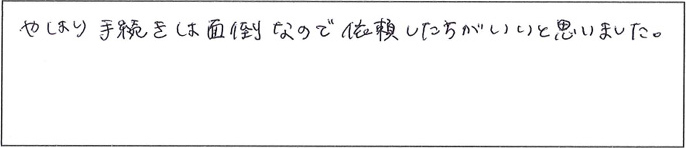 やはり手続きは面倒なので依頼したちがいいと思いました。